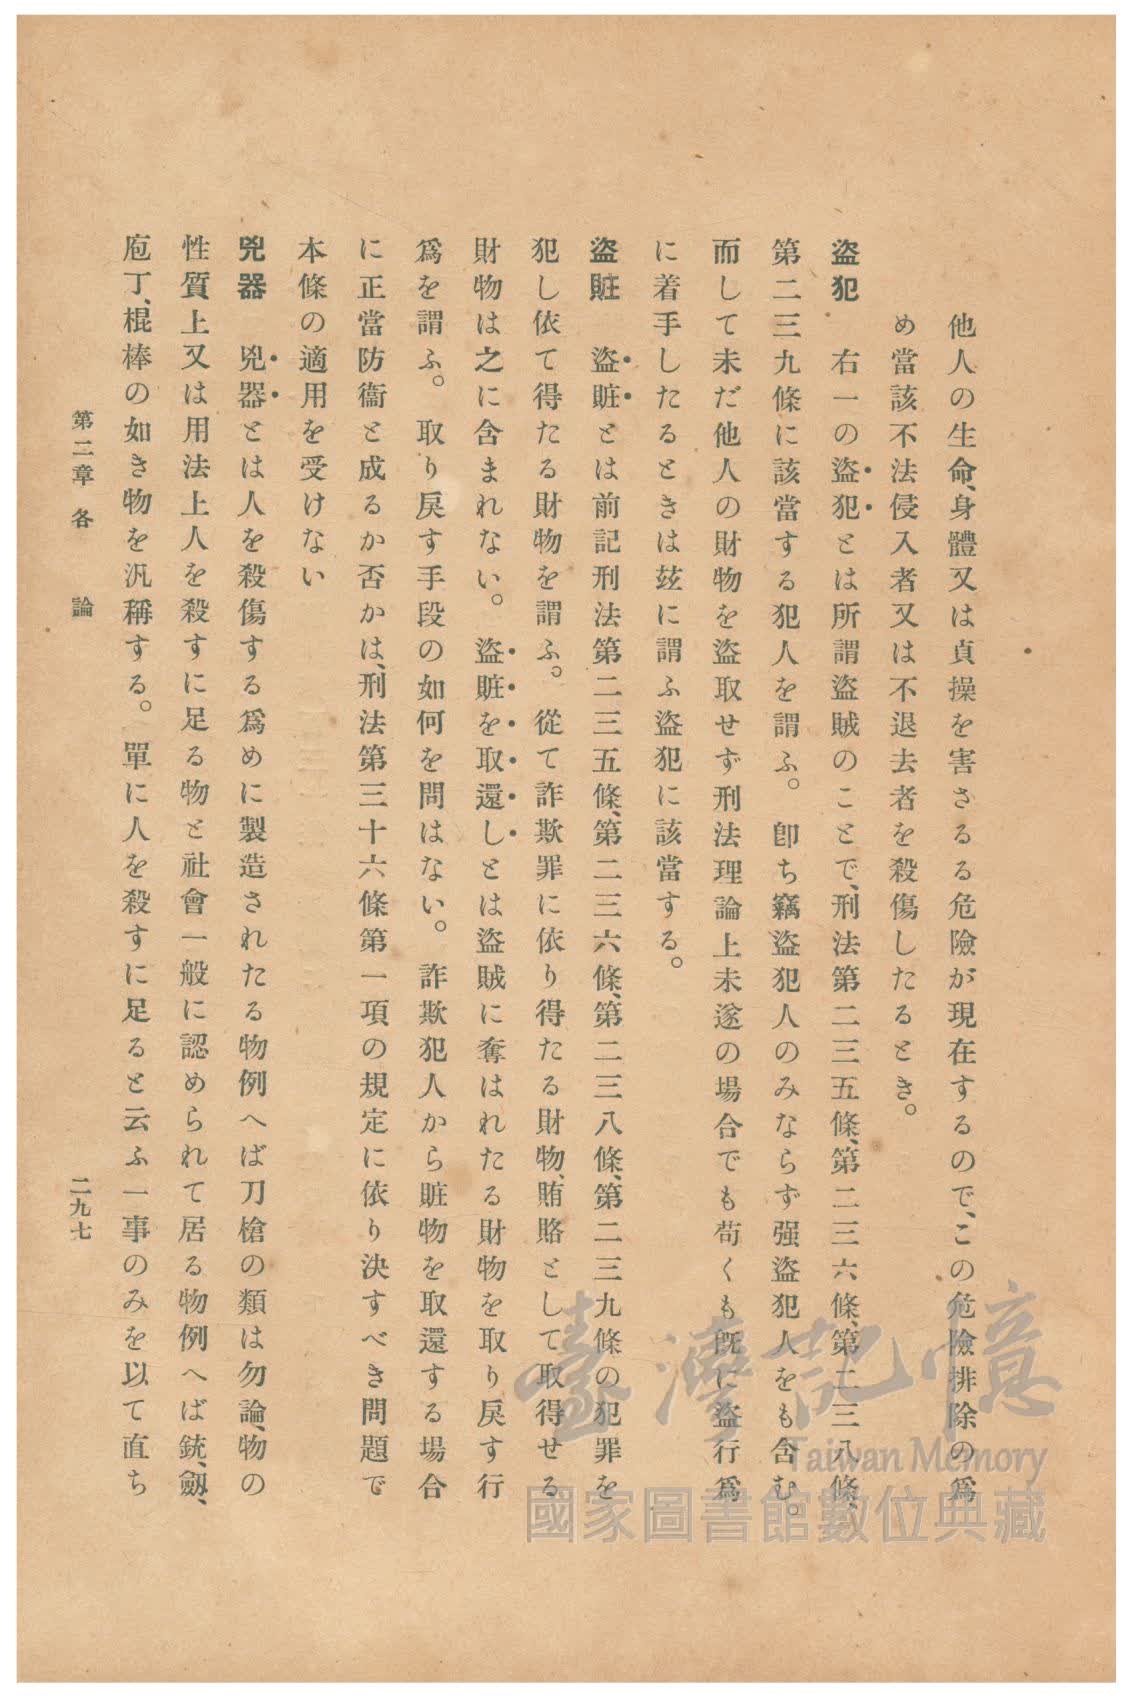 他人の生命、身體又は貞操を害さるる危險が現在するので、この危險排除の爲
め當該不法侵入者又は不退去者を殺傷したるとき。
盜犯　右一の盜犯とは所謂盜賊のことで、刑法第二三五條、第二三六條、第二三八條、
第二三九條に該當する犯人を謂ふ。卽ち竊盜犯人のみならず强盜犯人をも含む。
而して未だ他人の財物を盜取せず刑法理論上未遂の場合でも苟くも既に盜行爲
に着手したるときは玆に謂ふ盜犯に該當する。
盜贓　盜贓とは前記刑法第二三五條、第二三六條、第二三八條、第二三九條の犯罪を
犯し依て得たる財物を謂ふ。從て詐欺罪に依り得たる財物、賄賂として取得せる
財物は之に含まれない。盜贓を取還しとは盜賊に奪はれたる財物を取り戾す行
爲を謂ふ。取り戾す手段の如何を問はない。詐欺犯人から贓物を取還する場合
に正當防衞と成るか否かは、刑法第三十六條第一項の規定に依り決すべき問題で
本條の適用を受けない
兇器　兇器とは人を殺傷する爲めに製造されたる物例へば刀槍の類は勿論、物の
性質上又は用法上人を殺すに足る物と社會一般に認められて居る物例へば銃、劔、
庖丁、棍棒の如き物を汎稱する。單に人を殺すに足ると云ふ一事のみを以て直ち
第二章 各　論
二九七
臺灣記憶
Taiwan Memory
國家圖書館數位典藏